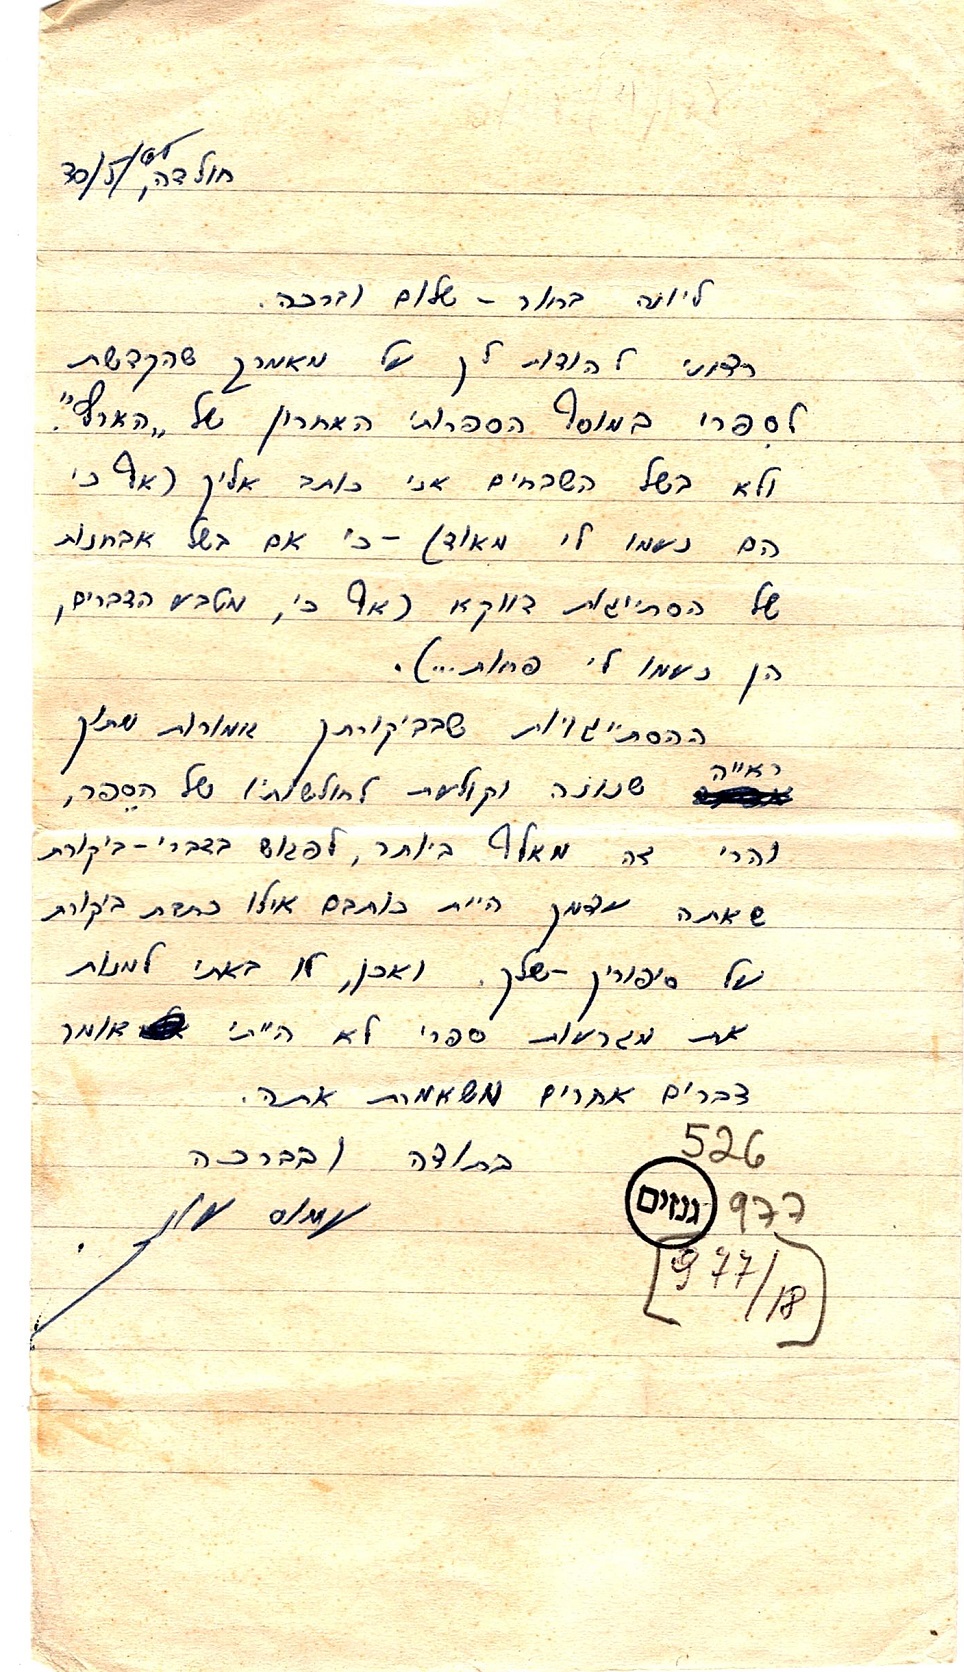 חולדה, 30/5/65
ליונה בחור - שלום וברכה.
רצוני להודות לך על מאמרך שהקדשת
לספרי במוסף הספרותי האחרון של „הארץ".
ולא בשל השבחים אני כותב אליך (אף כי
הם נעמו לי מאוד) - כי אם בשל אבחנות
של הסתייגות דווקא (אף כי, מטבע הדברים,
הן נעמו לי פחות...).
ההסתייגויות שבביקורתך אמורות מתוך
ראייה
שנונה וקולעת לחולשותיו של הספר,
והרי זה מאלף ביותר, לפגוש בדברי-ביקורת
שאתה עצמך היית כותבם אילו כתבת ביקורת
על סיפוריך-שלך. ואכן, לו באתי למנות
את מגרעות ספרי לא הייתי אומר
דברים אחרים משאמרת אתה.
בתודה ובברכה
עמוס עוז
526
גנזים
977
[977/18]